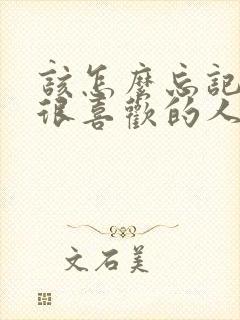 該怎麼忘記
很喜歡的人
文石美